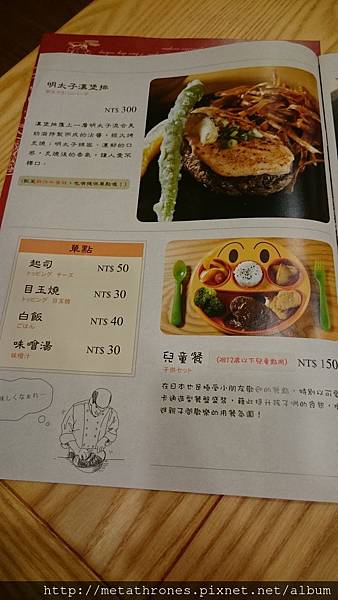 明太子漢堡排
NT$ 300
漢堡排覆上一層明太子混合美
乃滋特製而成的沾醬，經火烤
炙燒；明太子綿密、濃郁的口
感，炙燒後的香氣，讓人愛不
釋口。
單點
起司
トッピング チーズ
NT$ 50
目玉燒
トッピング 目玉焼
NT$ 30
白飯
ごはん
NT$ 40
味噌湯
味噌汁
NT$ 30
兒童餐
(限12歲以下兒童點用)
子供セット
NT$ 150
在日本也是極受小朋友歡迎的餐點，特別以可愛
卡通造型餐盤盛裝，藉此提升孩子們的食慾，
進親子間歡樂的用餐氛圍！
味しくなぁれ…
http://metathrones.pixnet.net/album